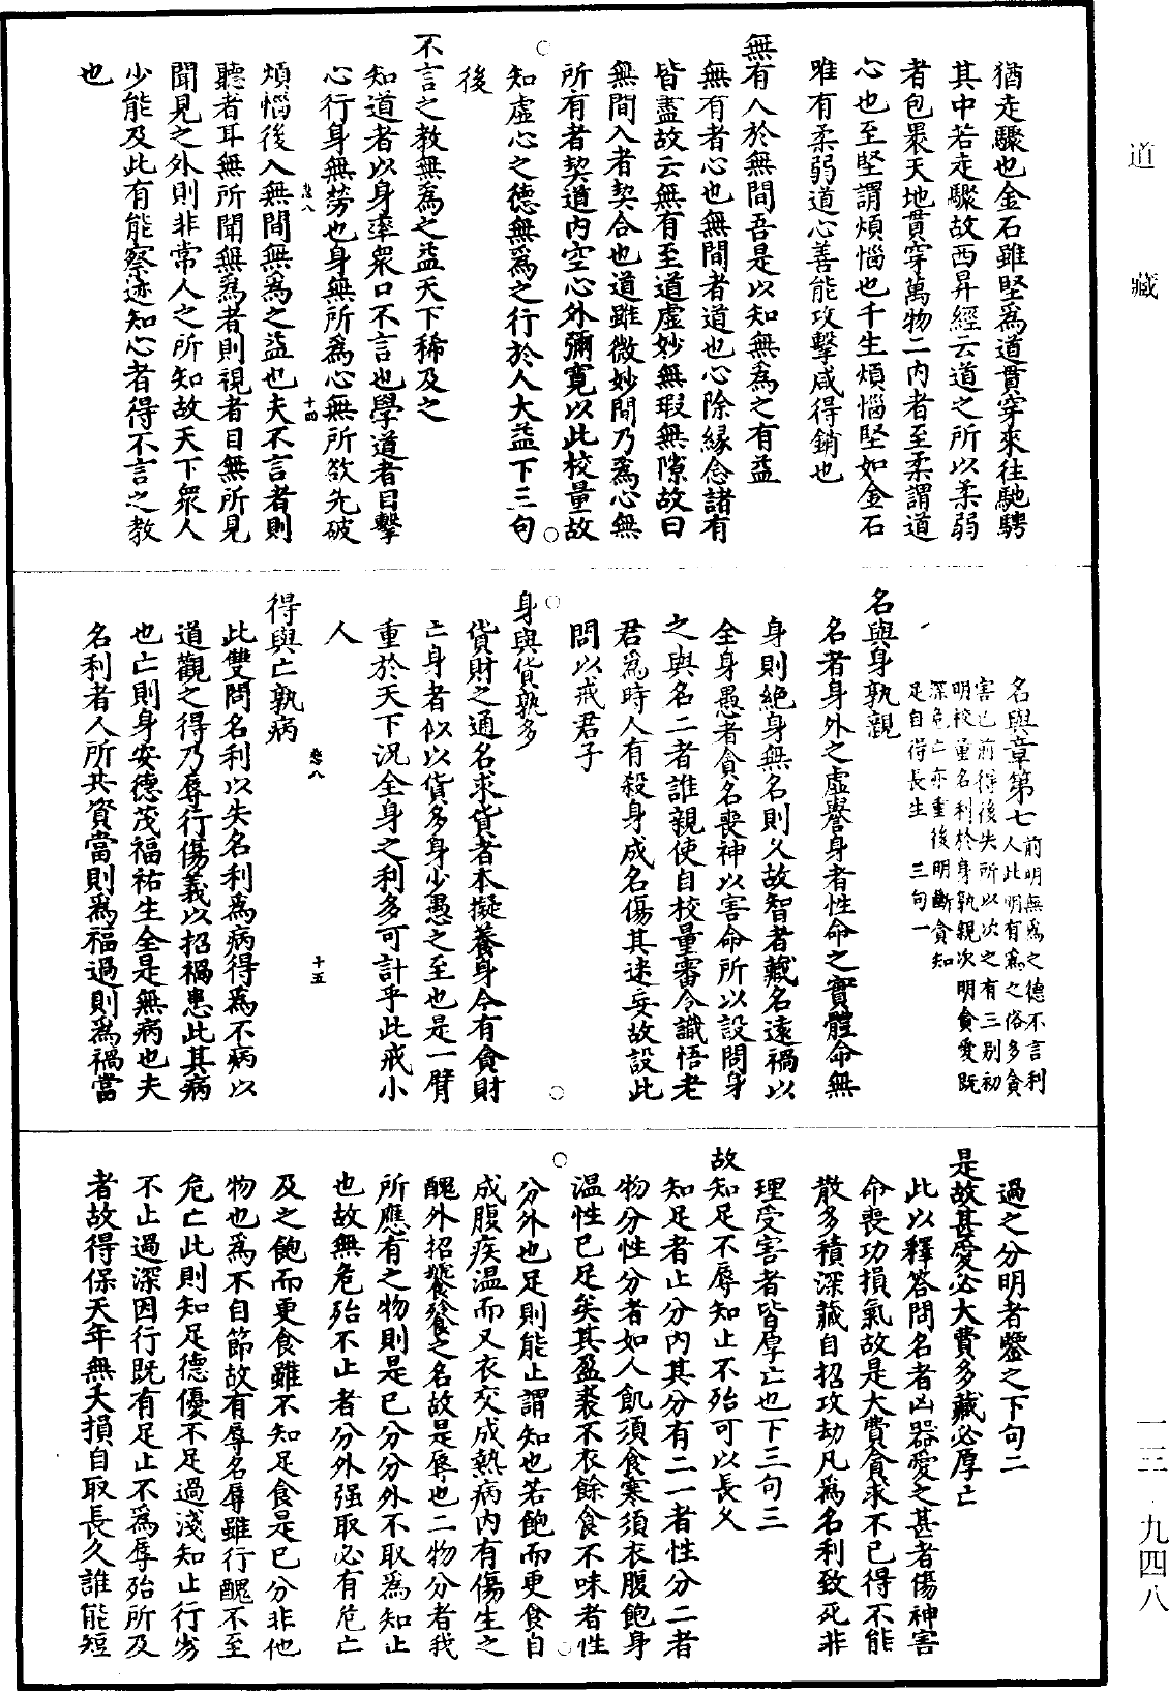 道藏
猶走驟也金石雖堅為道貫穿來往馳騁
其中若走驟故西昇經云道之所以柔弱
者包裹天地貫穿萬物二內者至柔謂道
心也至堅謂煩惱也千生煩惱堅如金石
唯有柔弱道心善能攻擊咸得銷也
無有入於無間吾是以知無為之有益
無有者心也無間者道也心除緣念諸有
皆盡故云無有至道虛妙無瑕無隙故曰
無間入者契合也道雖微妙問乃為心無
所有者契道內空心外彌寬以此校量故
知虛心之德無為之行於人大益下三句
後
不言之教無為之益天下稀及之
知道者以身率眾口不言也學道者目擊
心行身無勞也身無所為心無所欲先破
卷八
十四
煩惱後入無間無為之益也夫不言者則
聽者耳無所聞無為者則視者目無所見
聞見之外則非常人之所知故天下眾人
少能及此有能察迹知心者得不言之教
也
名與章第七前明無為之德不言利
人此明有為之俗多貪
害已前得後失所以次之有三別初
明校量名利於身孰親次明貪愛既
深危亡亦重後明斷貪知
足自得長生 三句一
名與身孰親
名者身外之虛譽身者性命之實體命無
身則絕身無名則久故智者藏名遠禍以
全身愚者貪名喪神以害命所以設問身
之與名二者誰親使自校量審令識悟老
君為時人有殺身成名傷其迷妄故設此
問以戒君子
身與貨孰多
貨財之通名求貨者本擬養身今有貪財
亡身者似以貨多身少愚之至也是一臂
重於天下況全身之利多可計乎此戒小
人
卷八
十五
得與亡孰病
此雙問名利以失名利為病得為不病以
道觀之得乃辱行傷義以招禍患此其病
也亡則身安德茂福祐生全是無病也夫
名利者人所共資當則為福過則為禍當
過之分明者鑒之下句二
是故甚愛必大費多藏必厚亡
此以釋答問名者凶器愛之甚者傷神害
命喪功損氣故是大費貪求不已得不能
散多積深藏自招攻劫凡為名利致死非
理受害者皆厚亡也下三句三
故知足不辱知止不殆可以長久
知足者止分內其分有二一者性分二者
物分性分者如人飢須食寒須衣腹飽身
溫性已足矣其盈裘不衣餘食不味者性
分外也足則能止謂知也若飽而更食自
成腹疾溫而又衣交成熱病內有傷生之
醜外招饕餮之名故是辱也二物分者我
所應有之物則是已分分外不取為知止
也故無危殆不止者分外強取必有危亡
及之飽而更食雖不知足食是已分非他
物也為不自節故有辱名辱雖行醜不至
危亡此則知足德優不足過淺知止行劣
不止過深因行既有足止不為辱殆所及
者故得保天年無夭損自取長久誰能短
一三·九四八